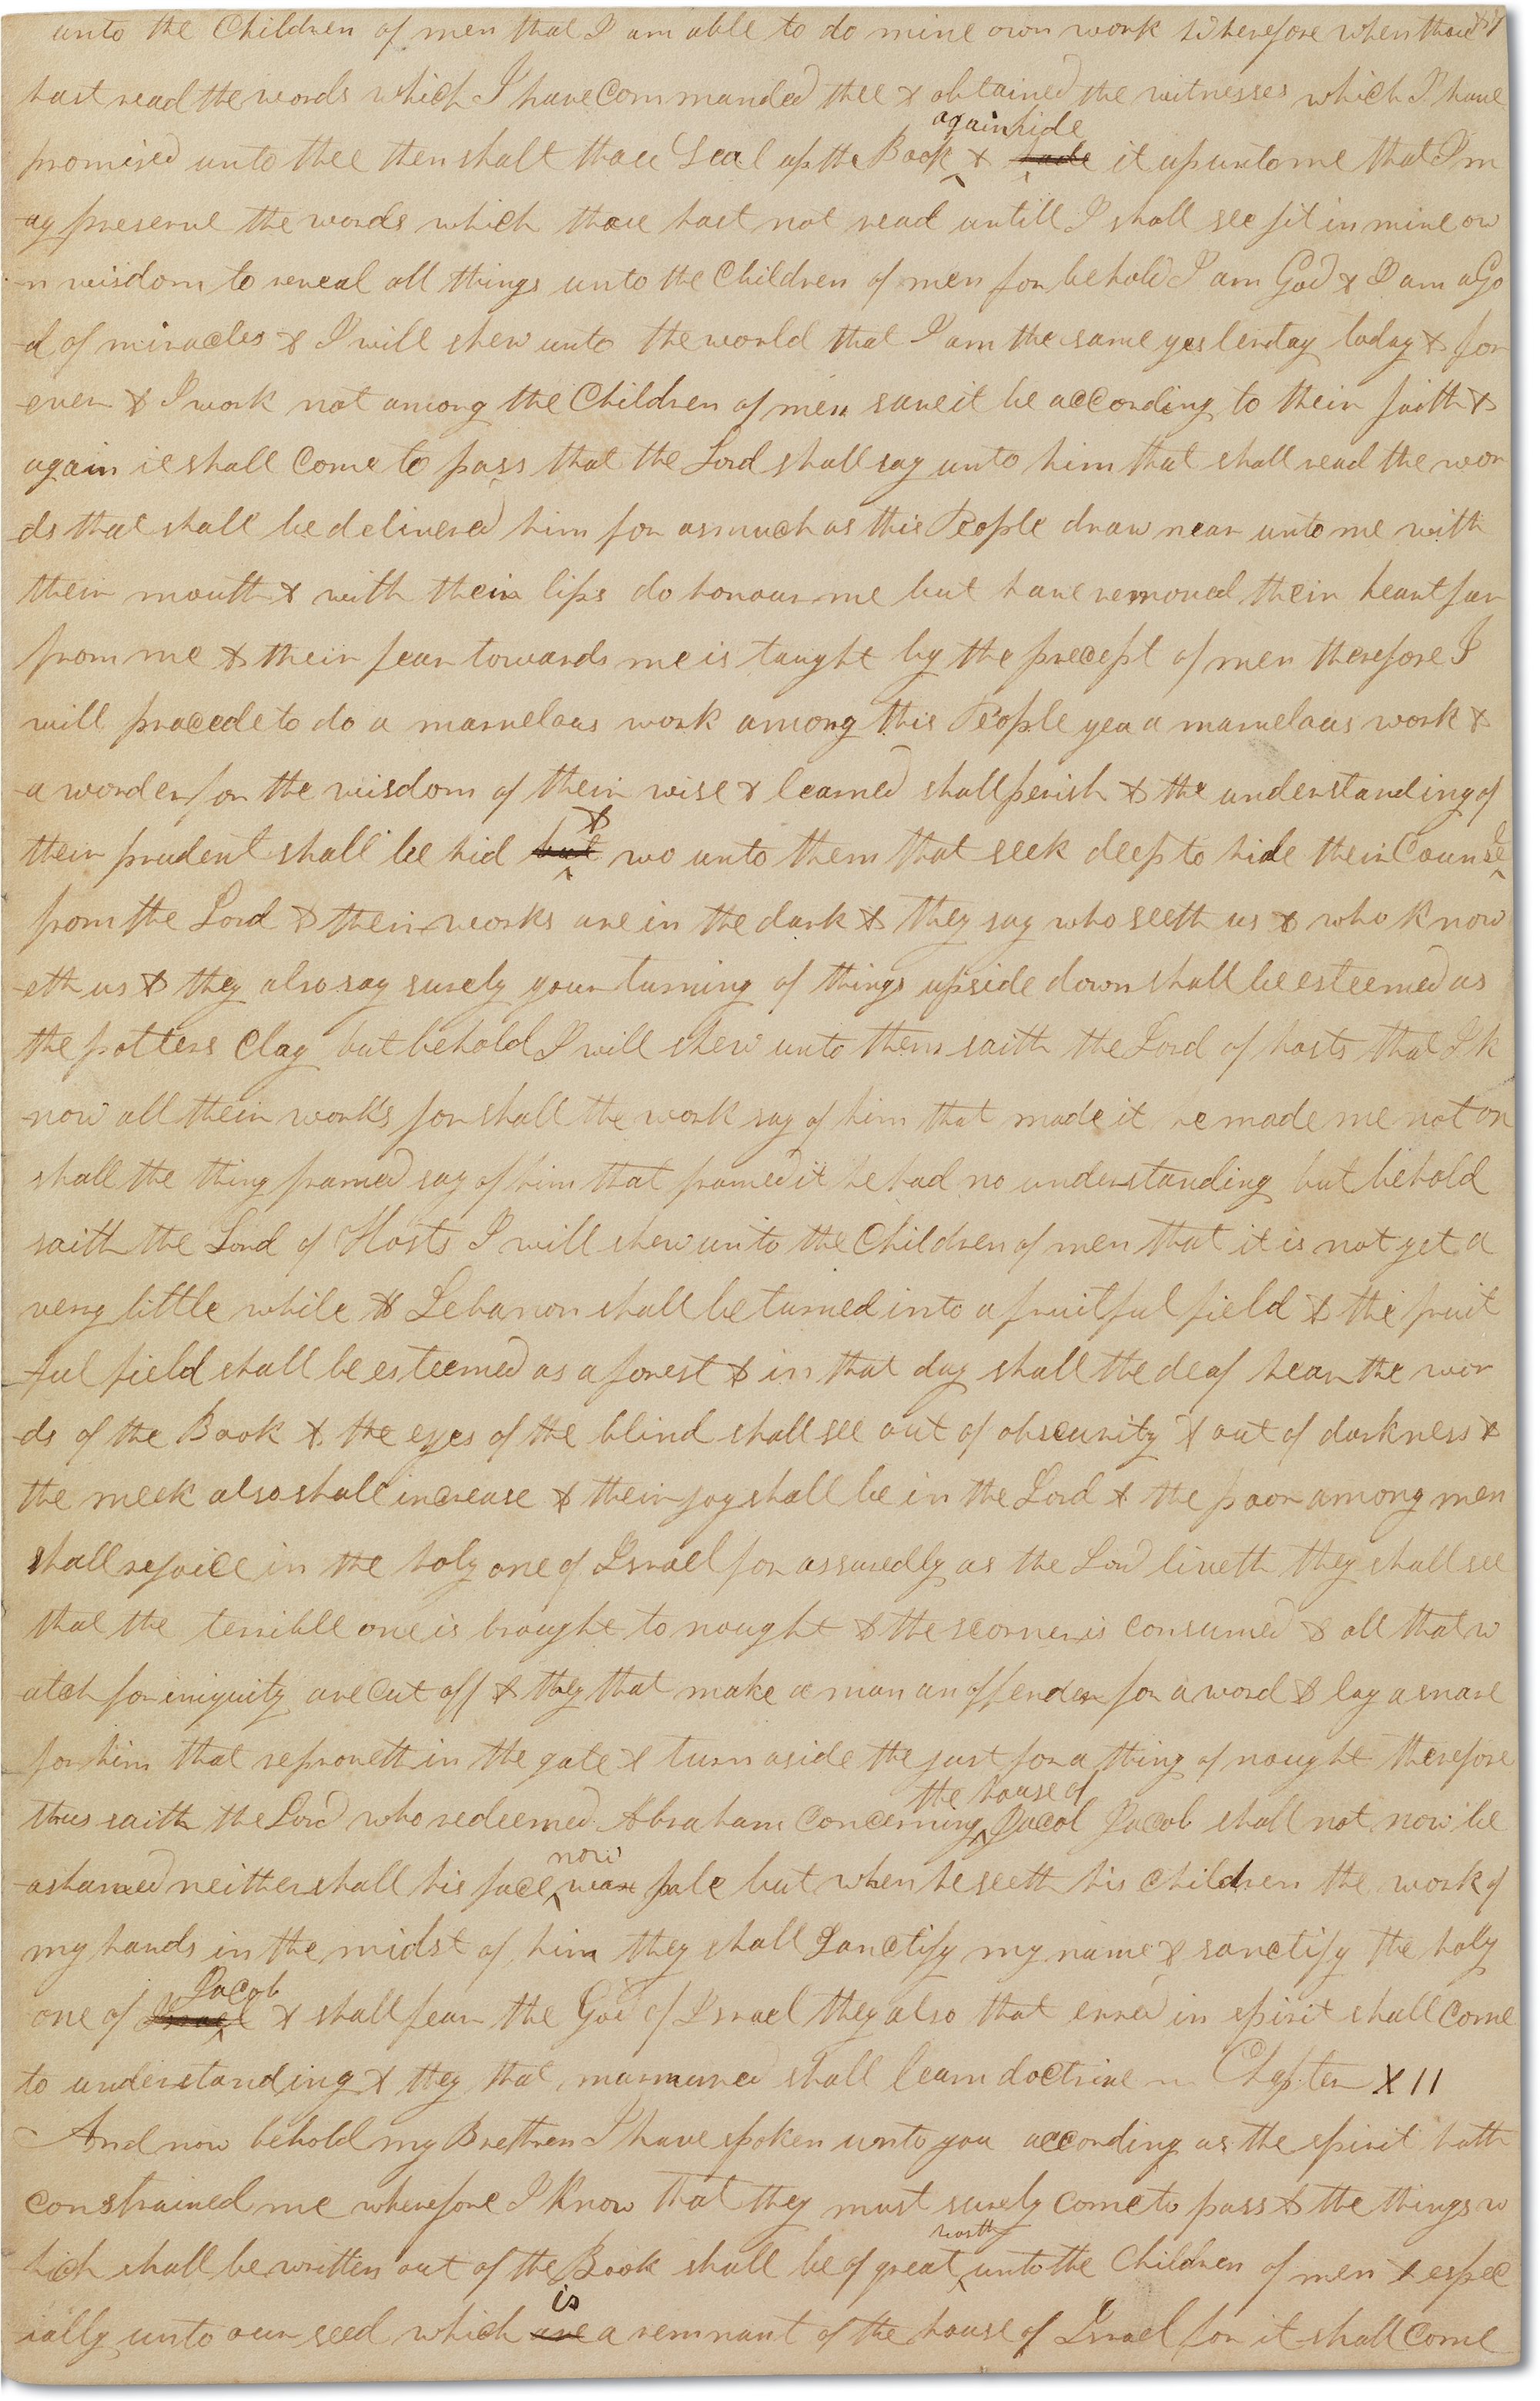 unto the Children of men that I am able to do mine own work Wherefore when thou
hast read the words which I have Commanded thee & obtained the witnesses which I have
again hide
promised unto thee then shalt thou Seal up the Book & hide it up unto me that I m
ay preserve the words which thou hast not read untill I shall see fit in mine ow
n wisdom to reveal all things unto the Children of men for behold I am God & I am a Go
d of miracles & I will shew unto the world that I am the same yesterday today & for
ever & I work not among the Children of men save it be according to their faith &
again it shall Come to pass that the Lord shall say unto him that shall read the wor
ds that shall be delivered him for asmuch as this People draw near unto me with
their mouth & with their lips do honour me but have removed their heart far
from me & their fear towards me is taught by the precept of men therefore I
will procede to do a marvelous work among this People yea a marvelous work &
a wonder for the wisdom of their wise & learned shall perish & the understanding of
&
their prudent shall be hid but wo unto them that seek deep to hide their Counsel
from the Lord & their works are in the dark & they say who seeth us & who know
eth us & they also say surely your turning of things upside down shall be esteemed as
the potters Clay but behold I will shew unto them saith the Lord of hosts that I k
now all their works for shall the work say of him that made it he made me not or
shall the thing framed say of him that framed it he had no understanding but behold
saith the Lord of Hosts I will shew unto the Children of men that it is not yet a
very little while & Lebanon shall be turned into a fruitful field & the fruit
ful field shall be esteemed as a forest & in that day shall the deaf hear the wor
ds of the Book & the eyes of the blind shall see out of obscurity & out of darkness &
the meek also shall increase & their joy shall be in the Lord & the poor among men
shall rejoice in the holy one of Israel for assuredly as the Lord liveth they shall see
that the terrible one is brought to nought & the scorner is consumed & all that w
atch for iniquity are Cut off & they that make a man an offender for a word & lay a snare
for him that reproveth in the gate & turn aside the just for a thing of nought therefore
the house of
thus saith the Lord who redeemed Abraham Concerning Jacob Jacob shall not now be
now
ashamed neither shall his face wax pale but when he seeth his Children the work of
my hands in the midst of him they shall Sanctify my name & sanctify the holy
Jacob
one of Israel & shall fear the God of Israel they also that erred in spirit shall Come
to understanding & they that murmured shall learn doctrine Chapter XII
And now behold my Brethren I have spoken unto you according as the spirit hath
constrained me wherefore I know that they must surely come to pass & the things w
worth
hich shall be written out of the Book shall be of great unto the Children of men & espec
is
ially unto our seed which are a remnant of the house of Israel for it shall Come